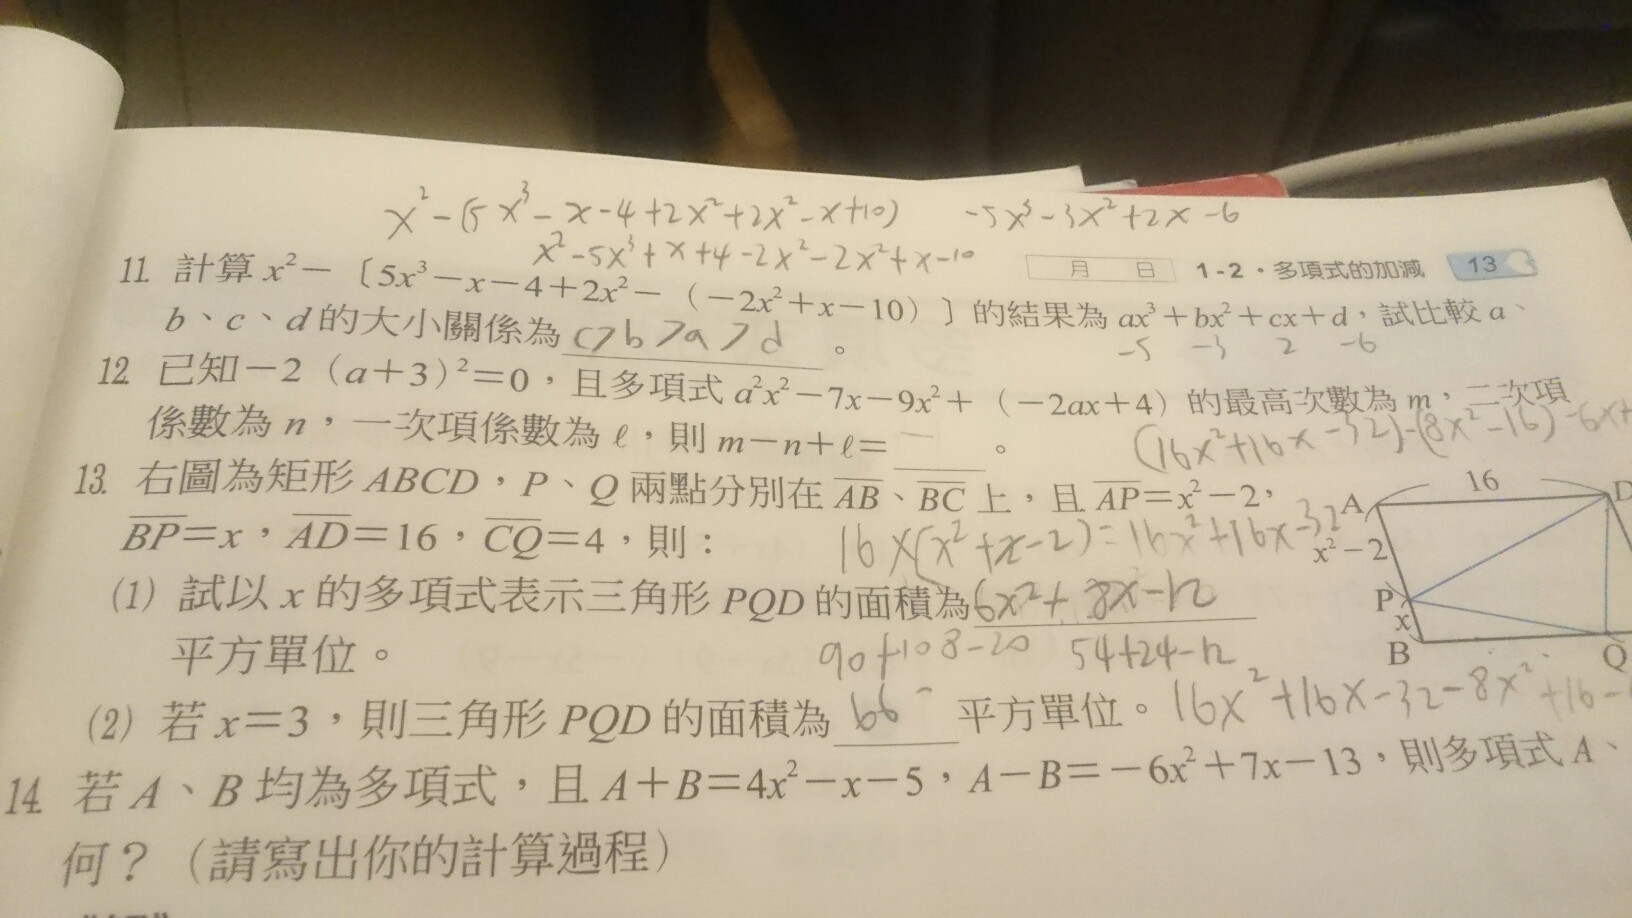 x²-(5x³-x-4+2x²+2x²-x+10) -5x³-3x²+2x-6
x²-5x³+x+4-2x²-2x²+x-10
月 日 1-2・多項式的加減 13
11. 計算 x²-〔5x³-x-4+2x²-(-2x²+x-10)〕的結果為 ax³+bx²+cx+d,試比較 a、
b、c、d 的大小關係為 c>b>a>d 。
-5 -3 2 -6
12. 已知-2(a+3)²=0,且多項式 a²x²-7x-9x²+(-2ax+4)的最高次數為 m,二次項
係數為 n,一次項係數為 ℓ,則 m-n+ℓ= 。
(16x²+16x-32)-(8x²-16)-6x+
13. 右圖為矩形 ABCD,P、Q 兩點分別在 AB、BC 上,且 AP=x²-2,
BP=x,AD=16,CQ=4,則:
16×(x²+x-2)=16x²+16x-32
(1) 試以 x 的多項式表示三角形 PQD 的面積為 6x²+8x-12
平方單位。
90+108-20 54+24-12
(2) 若 x=3,則三角形 PQD 的面積為 66 平方單位。
16x²+16x-32-8x²+16-
A 16 D
x²-2
P
x
B Q
14. 若 A、B 均為多項式,且 A+B=4x²-x-5,A-B=-6x²+7x-13,則多項式 A、
何?(請寫出你的計算過程)